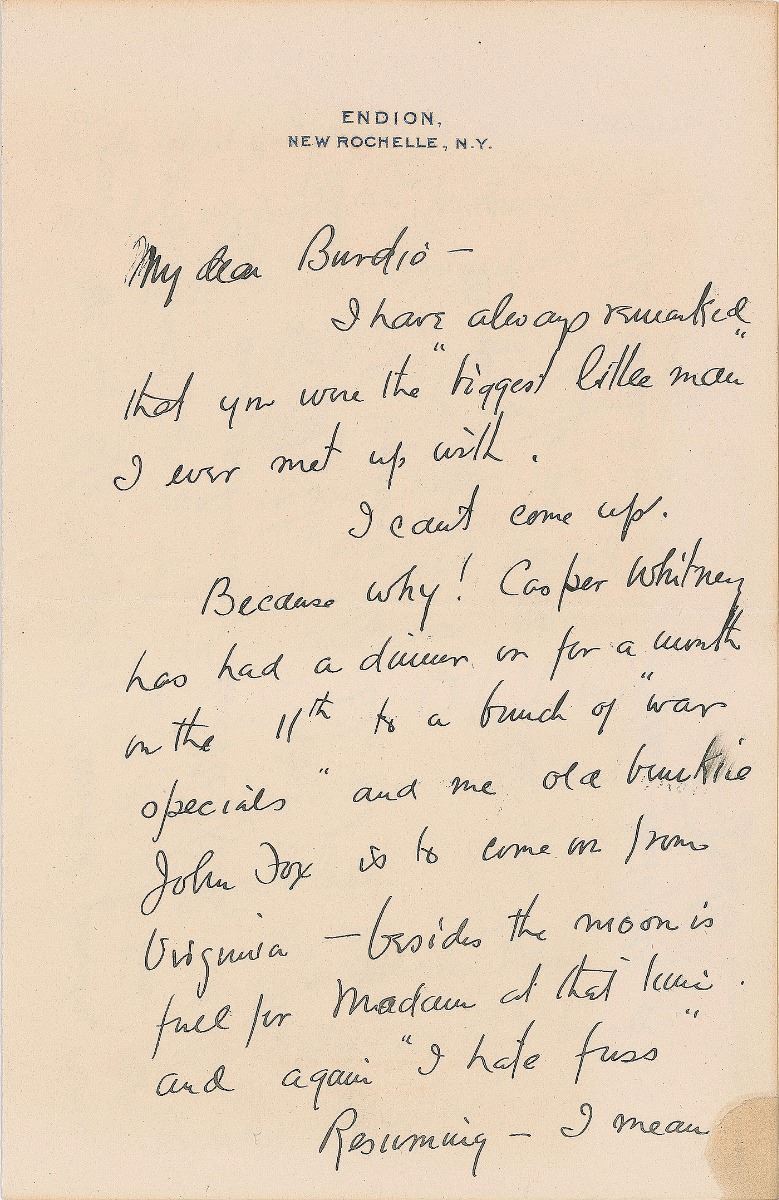 ENDION,
NEW ROCHELLE, N.Y.
My dear Burdio —
I have always remarked
that you were the "biggest little man"
I ever met up with.
I cant come up.
Because why! Casper Whitney
has had a dinner on for a month
on the 11th to a bunch of "war
specials" and me old bunkie
John Fox is to come on from
Virginia — besides the moon is
full for Madam at that time.
and again "I hate fuss"
Resuming — I mean